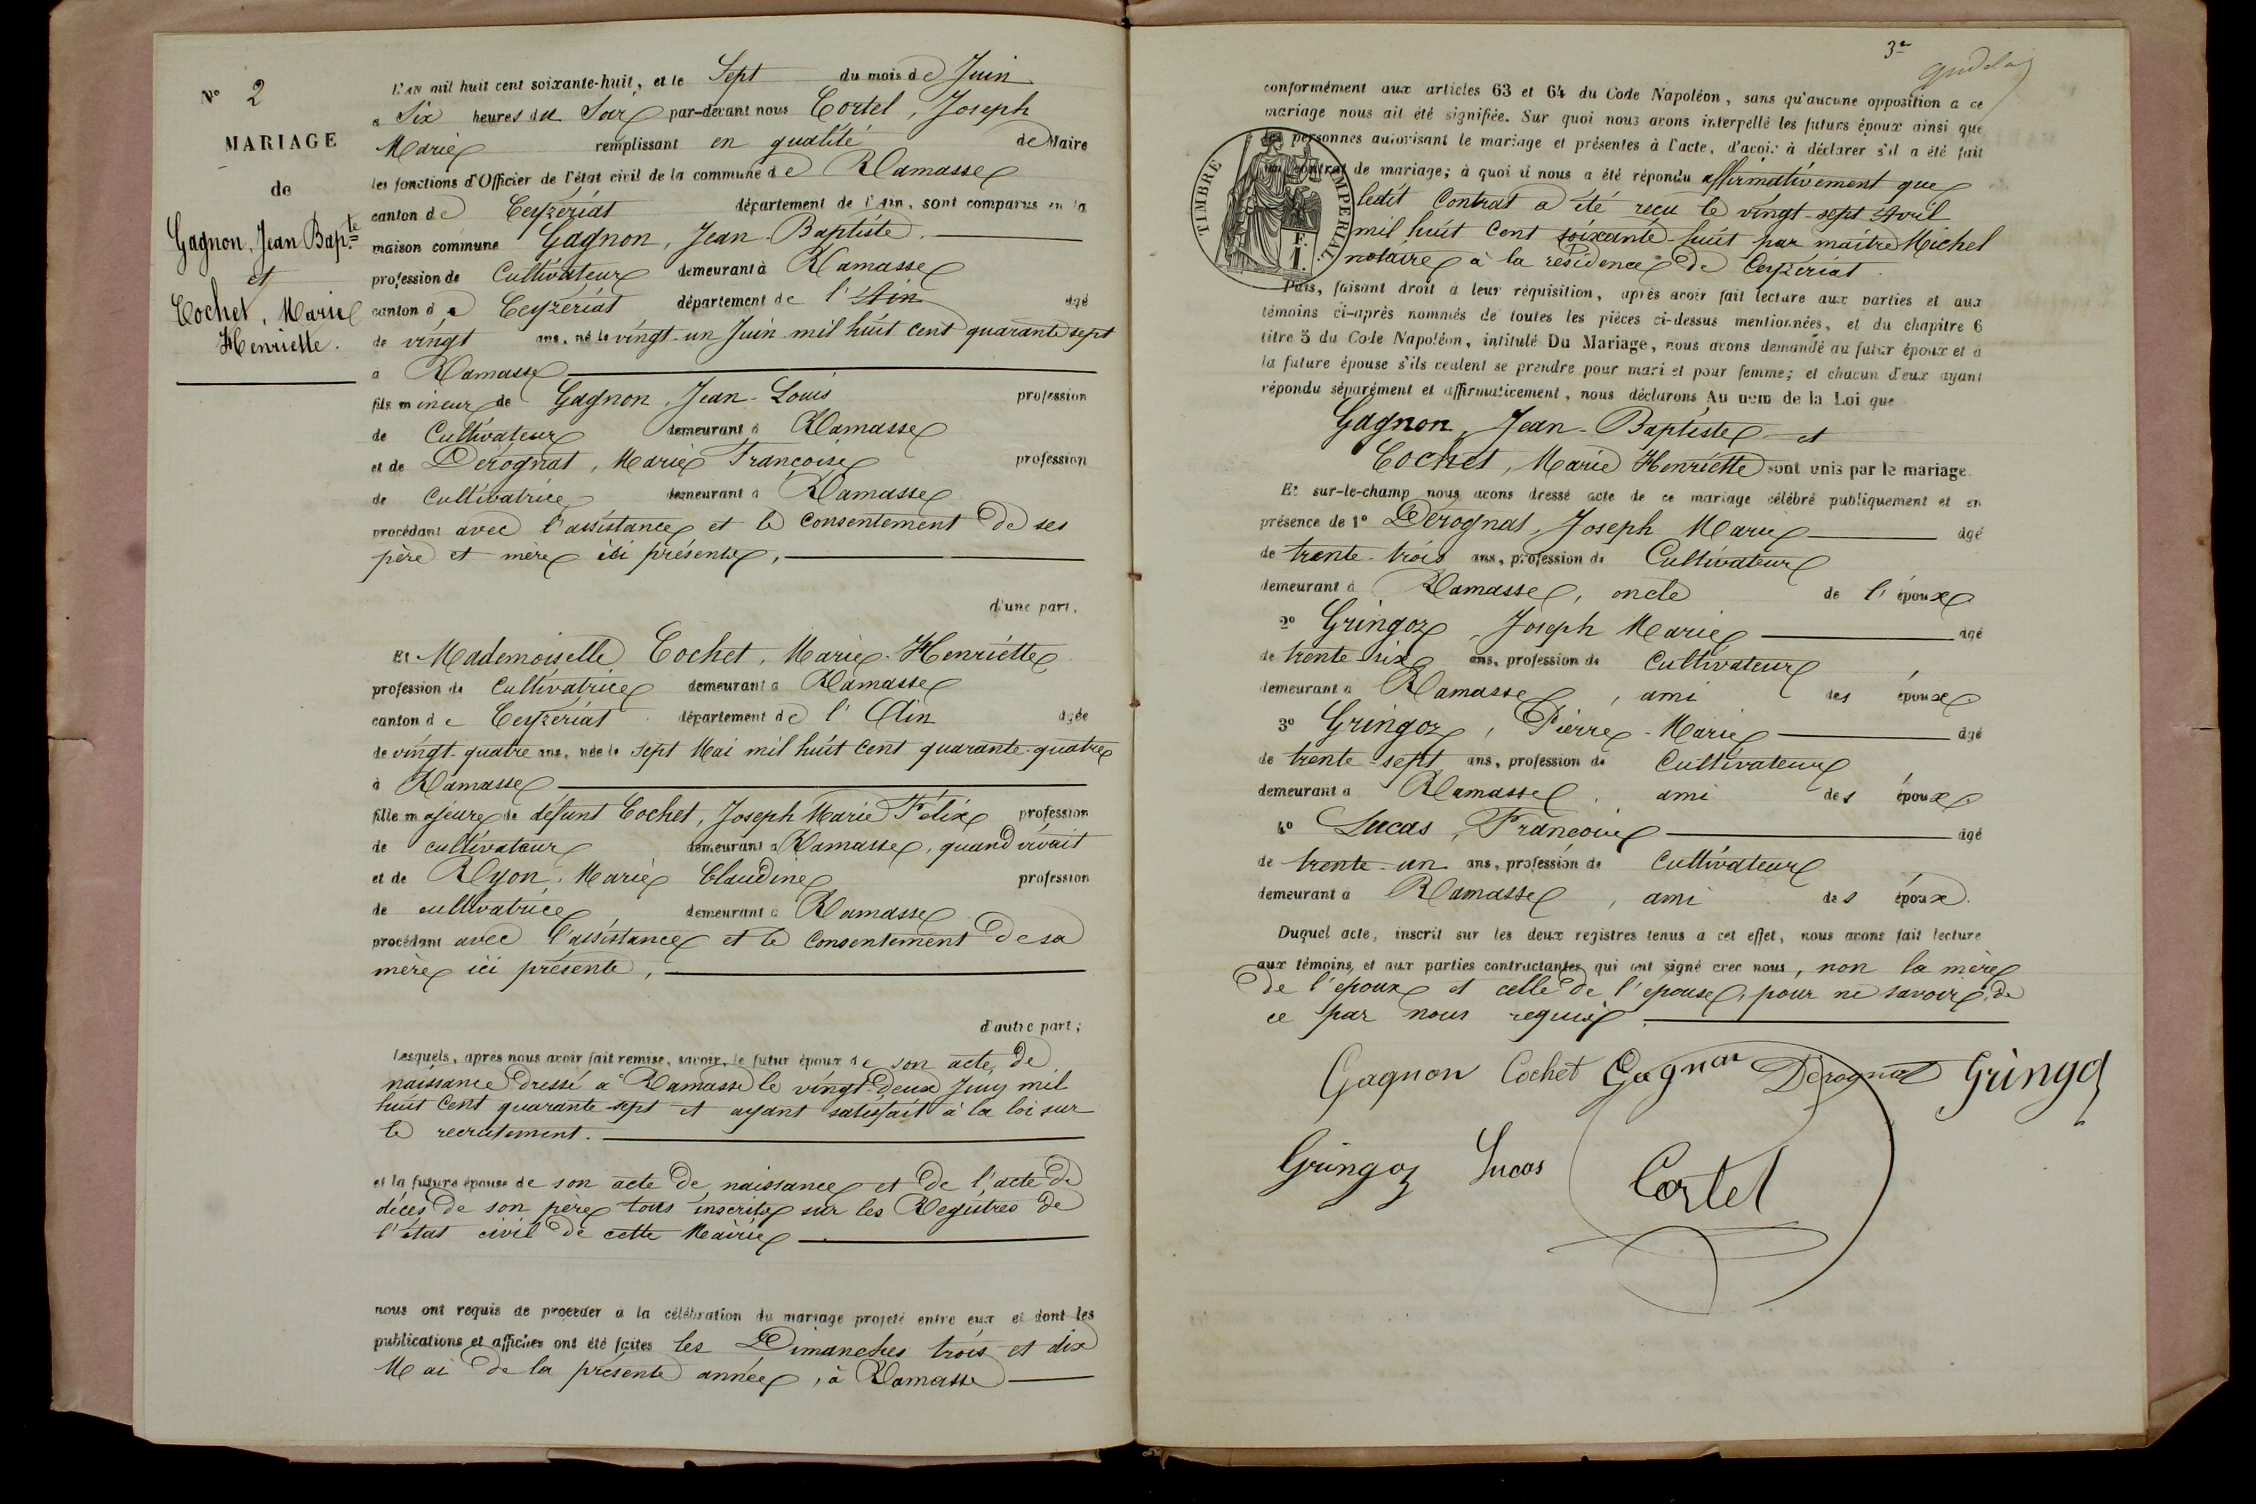 N° 2
MARIAGE
de
Gagnon, Jean Bapte
et
Cochet, Marie
Henriette.
L'AN mil huit cent soixante-huit, et le Sept du mois de Juin
à Six heures du Soir par-devant nous Cortel, Joseph
Marie remplissant en qualité de Maire
les fonctions d'Officier de l'état civil de la commune de Ramasse
canton de Ceyzériat département de l'Ain, sont comparus en la
maison commune Gagnon, Jean-Baptiste.
profession de Cultivateur demeurant à Ramasse
canton de Ceyzériat département de l'Ain agé
de vingt ans, né le vingt-un Juin mil huit cent quarante sept
à Ramasse
fils mineur de Gagnon, Jean-Louis profession
de Cultivateur demeurant à Ramasse
et de Derognat, Marie Françoise profession
de Cultivatrice demeurant à Ramasse
procédant avec l'assistance et le consentement de ses
père et mère ici présents,
d'une part,
Et Mademoiselle Cochet, Marie-Henriette
profession de Cultivatrice demeurant à Ramasse
canton de Ceyzériat département de l'Ain agée
de vingt-quatre ans, née le sept Mai mil huit cent quarante-quatre
à Ramasse
fille majeure de défunt Cochet, Joseph Marie Félix profession
de cultivateur demeurant à Ramasse, quand vivait
et de Ryon, Marie Claudine profession
de cultivatrice demeurant à Ramasse
procédant avec l'assistance et le consentement de sa
mère ici présente,
d'autre part;
Lesquels, après nous avoir fait remise, savoir, le futur époux de son acte de
naissance dressé à Ramasse le vingt-deux Juin mil
huit cent quarante-sept et ayant satisfait à la loi sur
le recrutement.
et la future épouse de son acte de naissance et de l'acte de
décès de son père tous inscrits sur les Registres de
l'état civil de cette Mairie
nous ont requis de procéder à la célébration du mariage projeté entre eux et dont les
publications et affiches ont été faites les Dimanches trois et dix
Mai de la présente année, à Ramasse
3e
conformément aux articles 63 et 64 du Code Napoléon, sans qu'aucune opposition a ce
mariage nous ait été signifiée. Sur quoi nous avons interpellé les futurs époux ainsi que
les personnes autorisant le mariage et présentes à l'acte, d'avoir à déclarer s'il a été fait
un contrat de mariage; à quoi il nous a été répondu affirmativement que
ledit Contrat a été reçu le vingt-sept Avril
mil huit cent soixante-huit par maître Michel
notaire à la résidence de Ceyzériat.
TIMBRE IMPERIAL
F.
1.
Puis, faisant droit à leur réquisition, après avoir fait lecture aux parties et aux
témoins ci-après nommés de toutes les pièces ci-dessus mentionnées, et du chapitre 6
titre 5 du Code Napoléon, intitulé Du Mariage, nous avons demandé au futur époux et à
la future épouse s'ils veulent se prendre pour mari et pour femme; et chacun d'eux ayant
répondu séparément et affirmativement, nous déclarons Au nom de la Loi que
Gagnon, Jean-Baptiste et
Cochet, Marie Henriette sont unis par le mariage
Et sur-le-champ nous avons dressé acte de ce mariage célébré publiquement et en
présence de 1° Dérognat, Joseph Marie agé
de trente-trois ans, profession de Cultivateur
demeurant à Ramasse, oncle de l'époux
2° Gringoz, Joseph Marie agé
de trente-six ans, profession de Cultivateur
demeurant à Ramasse, ami des époux
3° Gringoz, Pierre-Marie agé
de trente-sept ans, profession de Cultivateur
demeurant à Ramasse, ami des époux
4° Lucas, François agé
de trente-un ans, profession de Cultivateur
demeurant à Ramasse, ami des époux.
Duquel acte, inscrit sur les deux registres tenus a cet effet, nous avons fait lecture
aux témoins, et aux parties contractantes qui ont signé avec nous, non la mère
de l'époux et celle de l'épouse, pour ne savoir, de
ce par nous requis.
Gagnon Cochet Gagnon Dérognat Gringoz
Gringoz Lucas Cortel